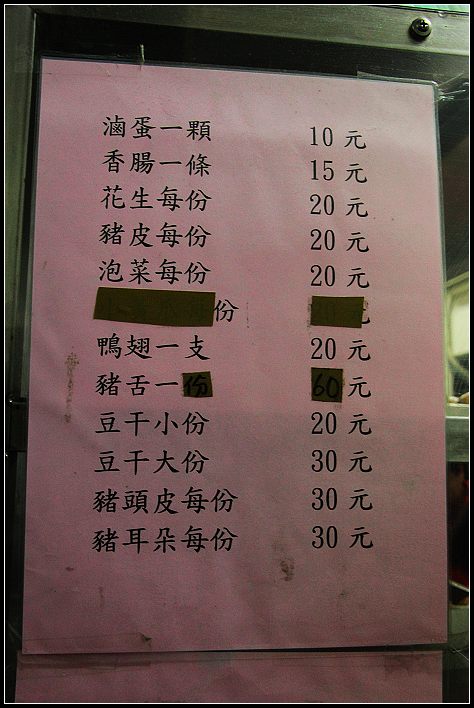 滷蛋一顆 10 元
香腸一條 15 元
花生每份 20 元
豬皮每份 20 元
泡菜每份 20 元
份 元
鴨翅一支 20 元
豬舌一份 60 元
豆干小份 20 元
豆干大份 30 元
豬頭皮每份 30 元
豬耳朵每份 30 元